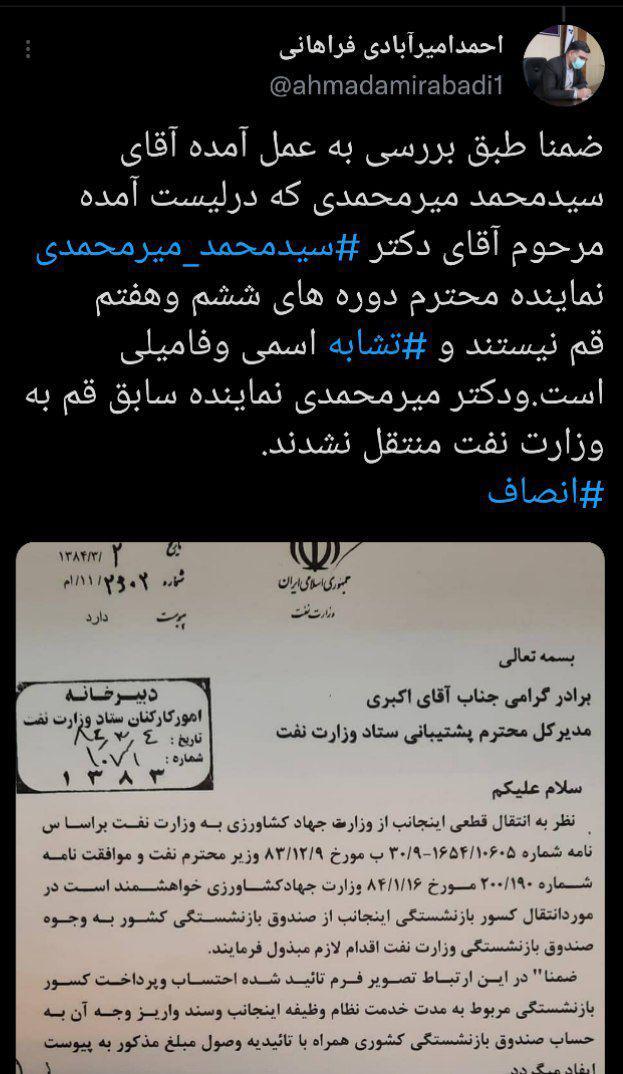 احمدامیرآبادی فراهانی
@ahmadamirabadi1
ضمنا طبق بررسی به عمل آمده آقای
سیدمحمد میرمحمدی که درلیست آمده
مرحوم آقای دکتر #سیدمحمد_میرمحمدی
نماینده محترم دوره های ششم وهفتم
قم نیستند و #تشابه اسمی وفامیلی
است.ودکتر میرمحمدی نماینده سابق قم به
وزارت نفت منتقل نشدند.
#انصاف
جمهوری اسلامی ایران
وزارت نفت
تاریخ ۱۳۸۴/۳/۲
شماره
پیوست دارد
بسمه تعالی
برادر گرامی جناب آقای اکبری
مدیرکل محترم پشتیبانی ستاد وزارت نفت
دبیرخانه
امورکارکنان ستاد وزارت نفت
تاریخ : ۸۴/۳/۴
شماره : ۱۰۷۱
۱۳۸۳
سلام علیکم
نظر به انتقال قطعی اینجانب از وزارت جهاد کشاورزی به وزارت نفت براسا س
نامه شماره ۱۶۵۴/۱۰۶۰۵-۳۰/۹ ب مورخ ۸۳/۱۲/۹ وزیر محترم نفت و موافقت نامه
شماره ۲۰۰/۱۹۰ مورخ ۸۴/۱/۱۶ وزارت جهادکشاورزی خواهشمند است در
موردانتقال کسور بازنشستگی اینجانب از صندوق بازنشستگی کشور به وجوه
صندوق بازنشستگی وزارت نفت اقدام لازم مبذول فرمایند.
ضمنا" در این ارتباط تصویر فرم تائید شده احتساب وپرداخت کسور
بازنشستگی مربوط به مدت خدمت نظام وظیفه اینجانب وسند واریز وجه آن به
حساب صندوق بازنشستگی کشوری همراه با تائیدیه وصول مبلغ مذکور به پیوست
ایفاد میگردد